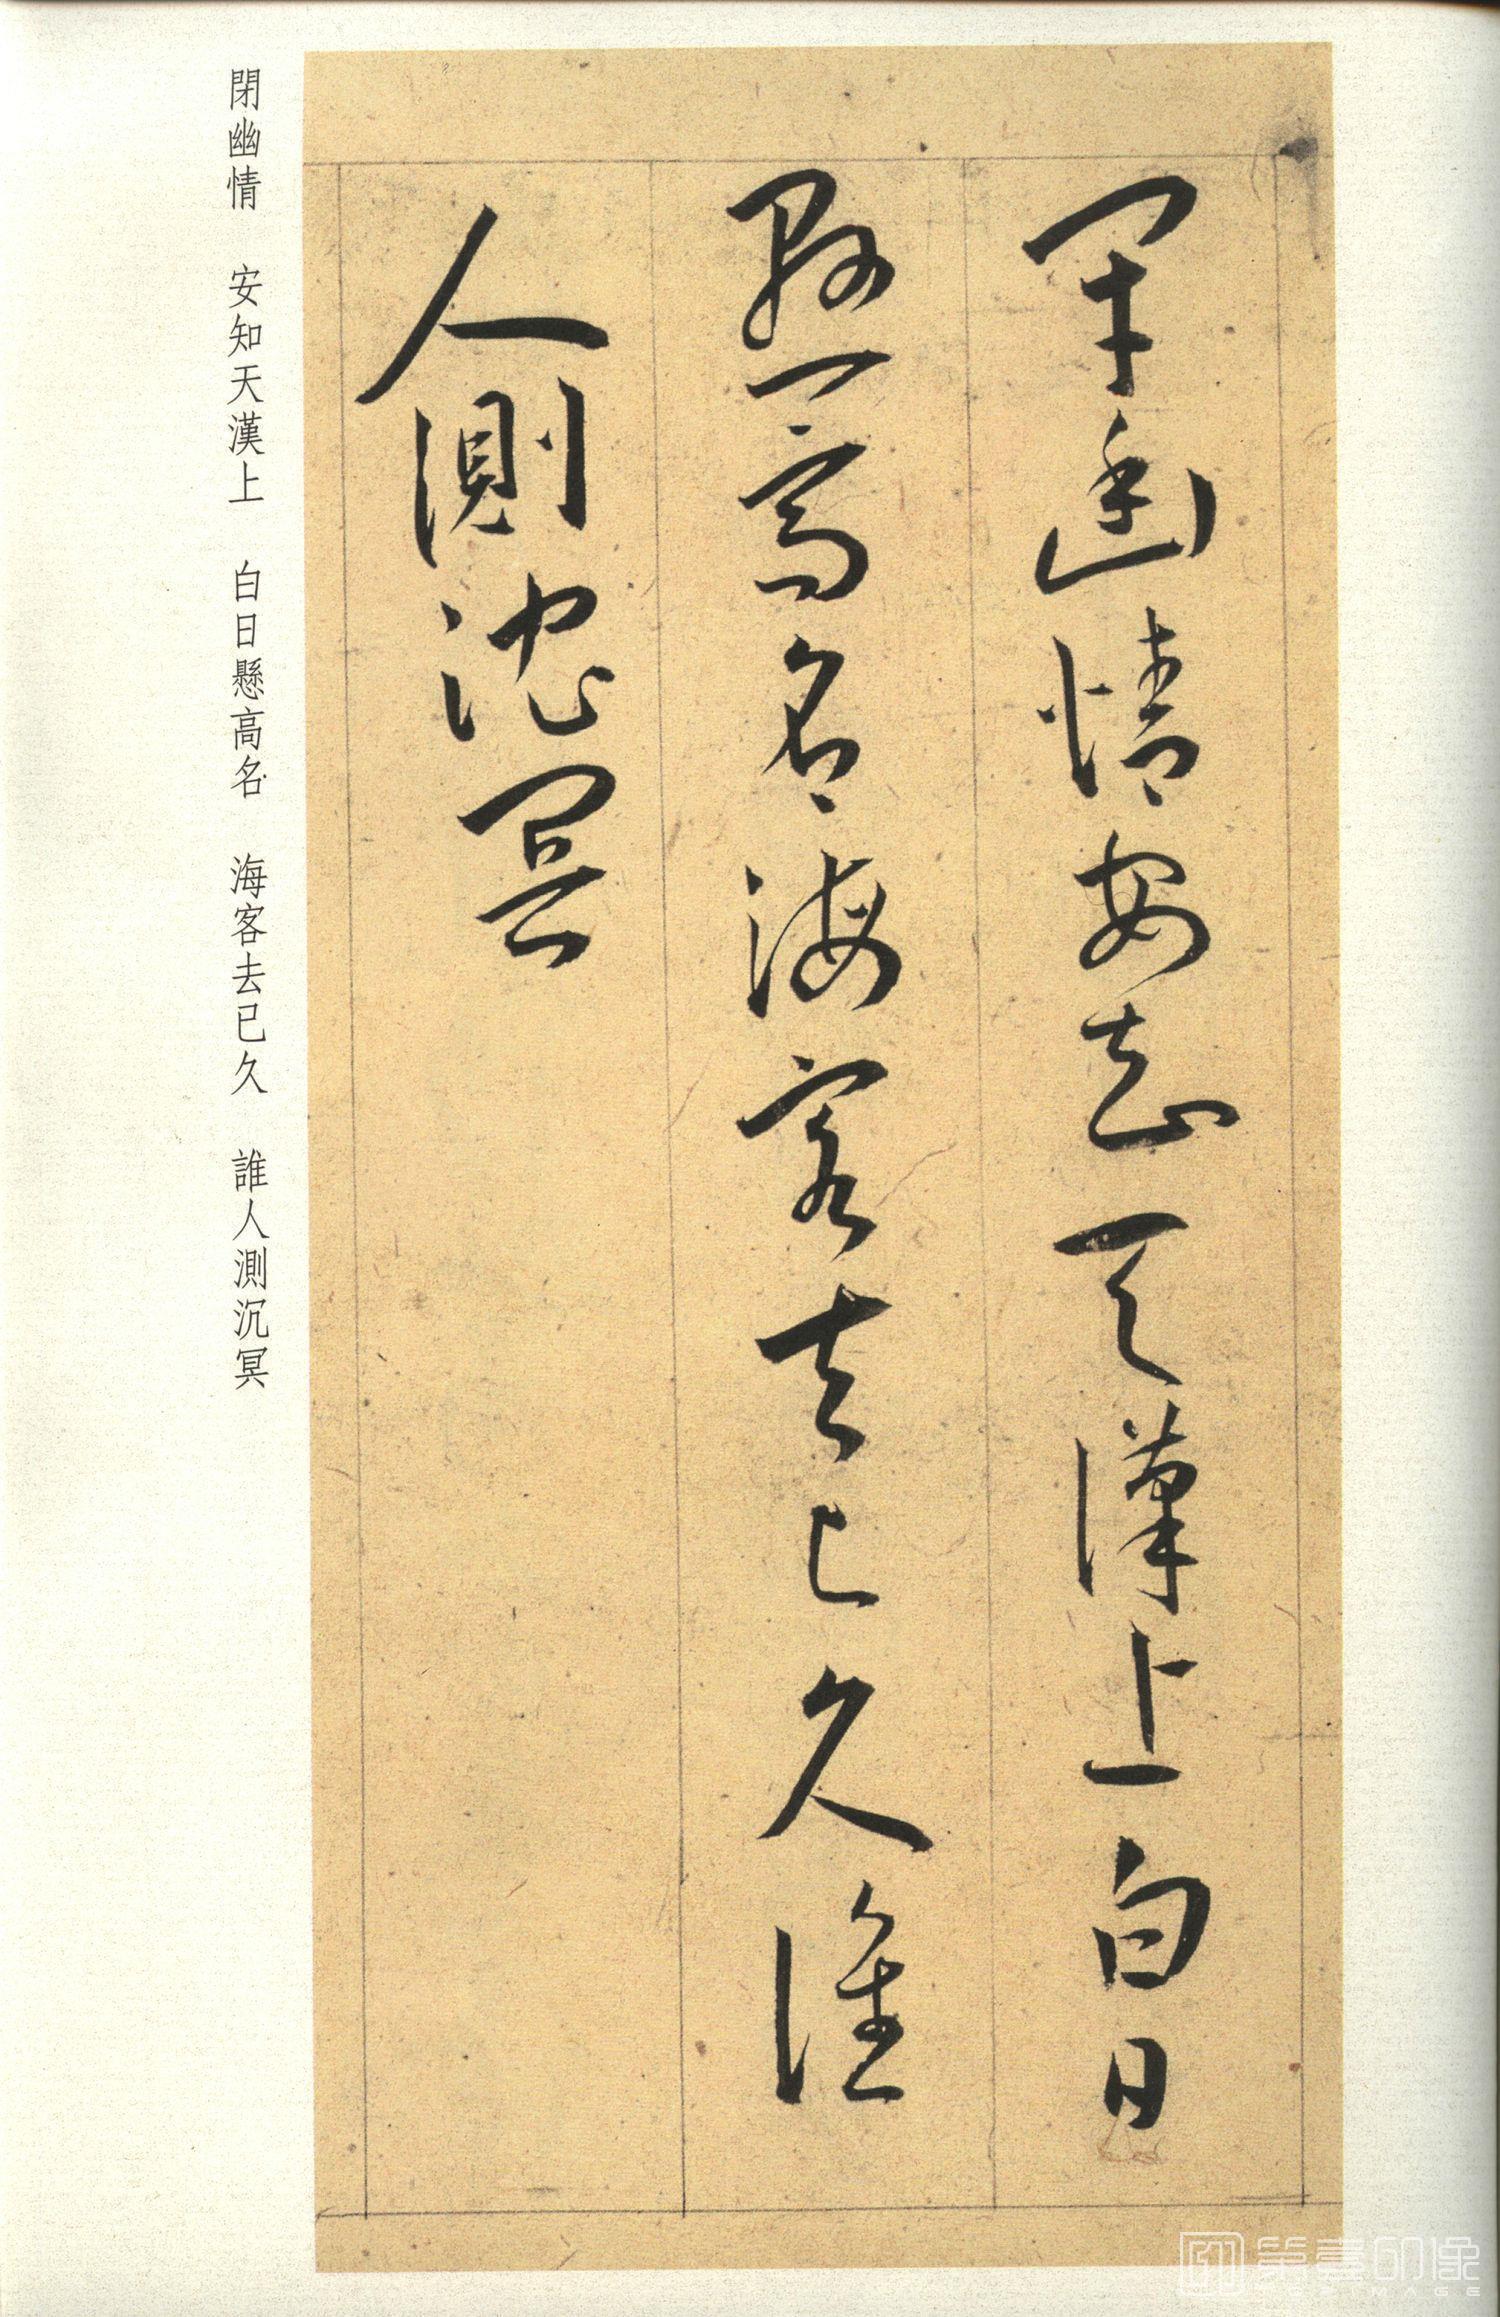 閉幽情安知天漢上白日
懸高名海客去已久誰
人測沉冥
閉幽情 安知天漢上 白日懸高名 海客去已久 誰人測沉冥
第壹印像
001IMAGE